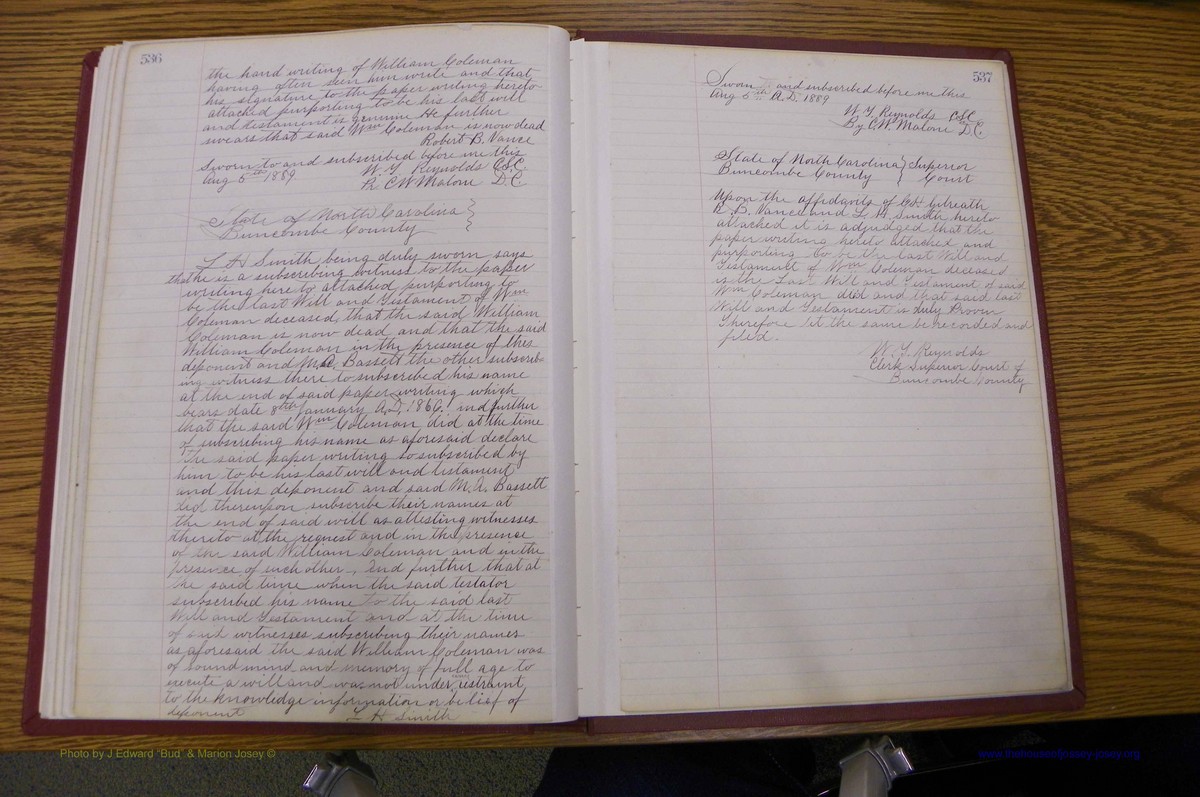 536
the hand writing of William Coleman
having often seen him write and that
his signature to the paper writing hereto
attached purporting to be his last will
and testament is genuine He further
swears that said Wm Coleman is now dead
Robert B. Vance
Sworn to and subscribed before me this
Aug 5th 1889
W. T. Reynolds C.S.C.
Pr C W Malone D.C.
State of North Carolina
Buncombe County
L H Smith being duly sworn says
that he is a subscribing witness to the paper
writing here to attached, purporting to
be the last Will and Testament of Wm
Coleman deceased, that the said William
Coleman is now dead and that the said
William Coleman in the presence of this
deponent and M.A. Bassett the other subscrib-
ing witness there to subscribed his name
at the end of said paper writing which
bears date 8th January A.D. 1866. and further
that the said Wm Coleman did at the time
of subscribing his name as aforesaid declare
the said paper writing so subscribed by
him to be his last will and testament
and this deponent and said M. A. Bassett
did thereupon subscribe their names at
the end of said will as attesting witnesses
thereto at the request and in the presence
of the said William Coleman and in the
presence of each other, And further that at
the said time when the said testator
subscribed his name to the said last
Will and Testament and at the time
of such witnesses subscribing their names
as aforesaid the said William Coleman was
of sound mind and memory of full age to
execute a will and was not under restraint
to the knowledge information or belief of
deponent L H Smith
537
Sworn to and subscribed before me this
Aug 5th A.D. 1889
W. T. Reynolds CSC
By C. W. Malone D.C.
State of North Carolina } Superior
Buncombe County } Court
Upon the affidavits of Gilreath
R. B. Vance and L. H. Smith hereto
attached it is adjudged that the
paper writing hereto attached and
purporting to be the last Will and
Testament of Wm Coleman deceased
is the Last Will and Testament of said
Wm Coleman decd and that said last
Will and Testament is duly Proven
Therefore let the same be recorded and
filed.
W. T. Reynolds
Clerk Superior Court of
Buncombe County
Photo by J Edward "Bud" & Marion Josey ©